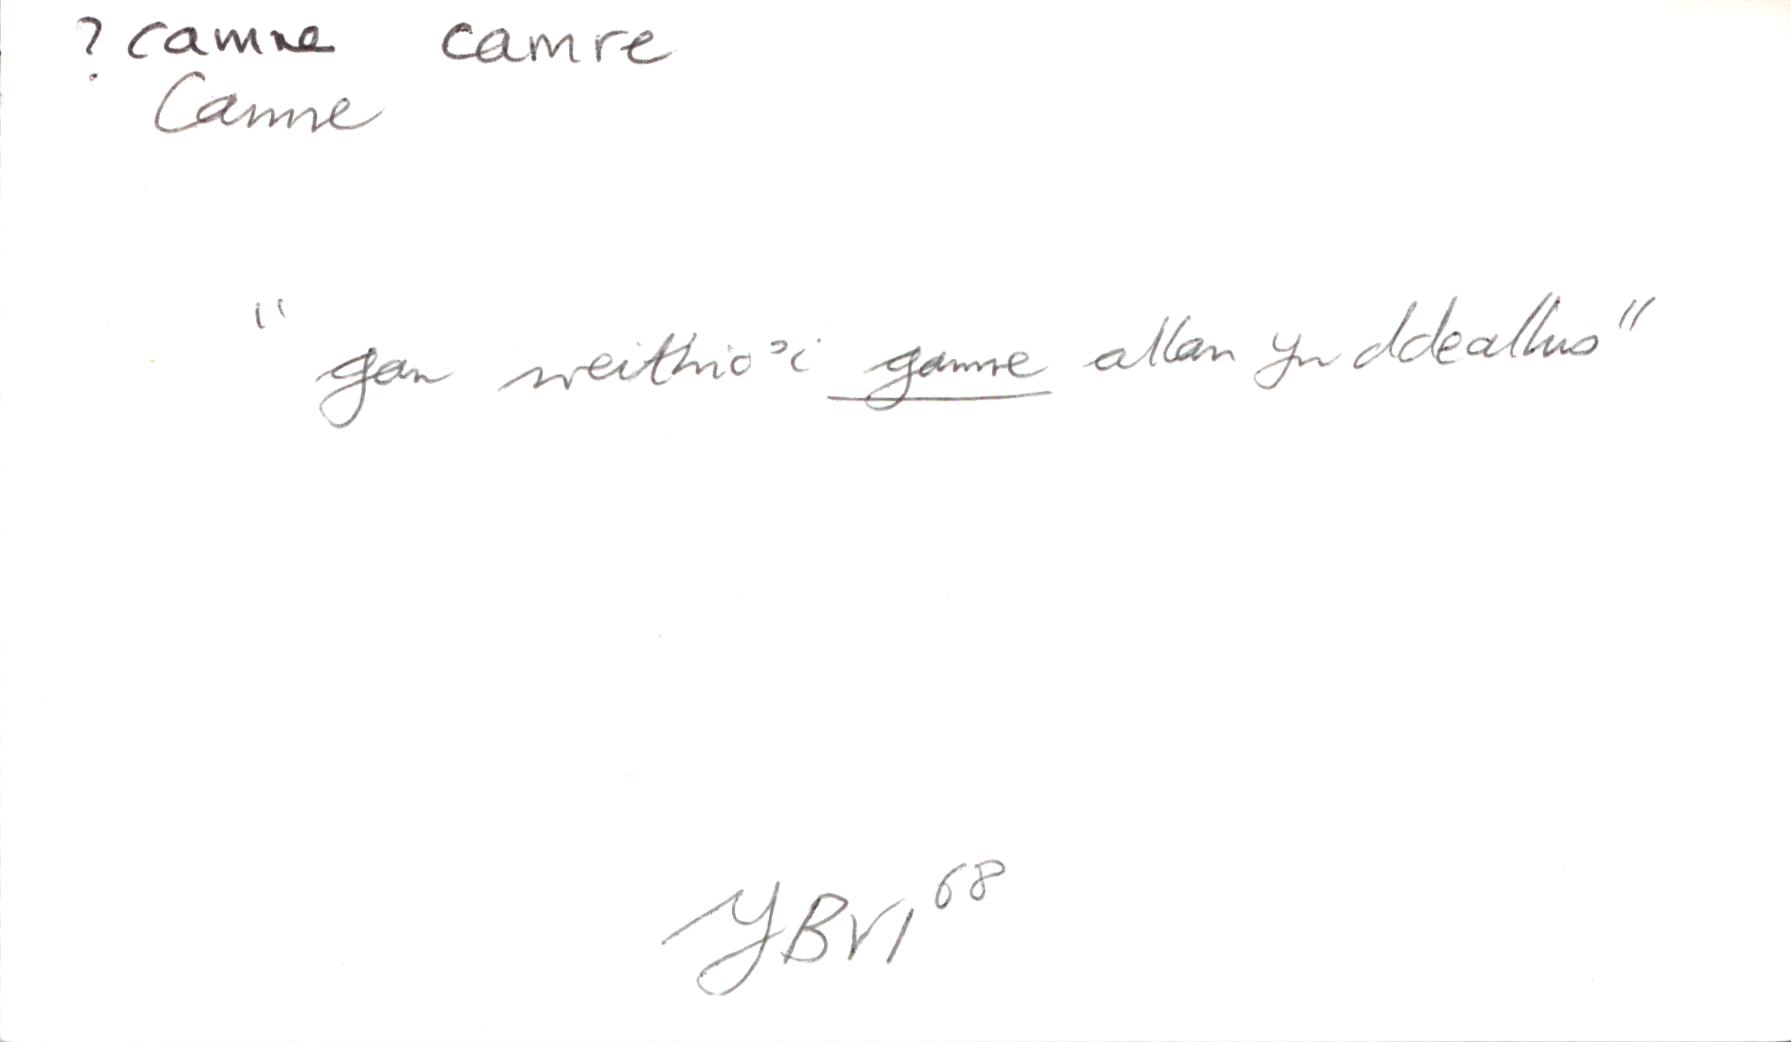 ? camre camre
Camre
"gan weithio'i gamre allan yn ddeallus"
YBVI 68